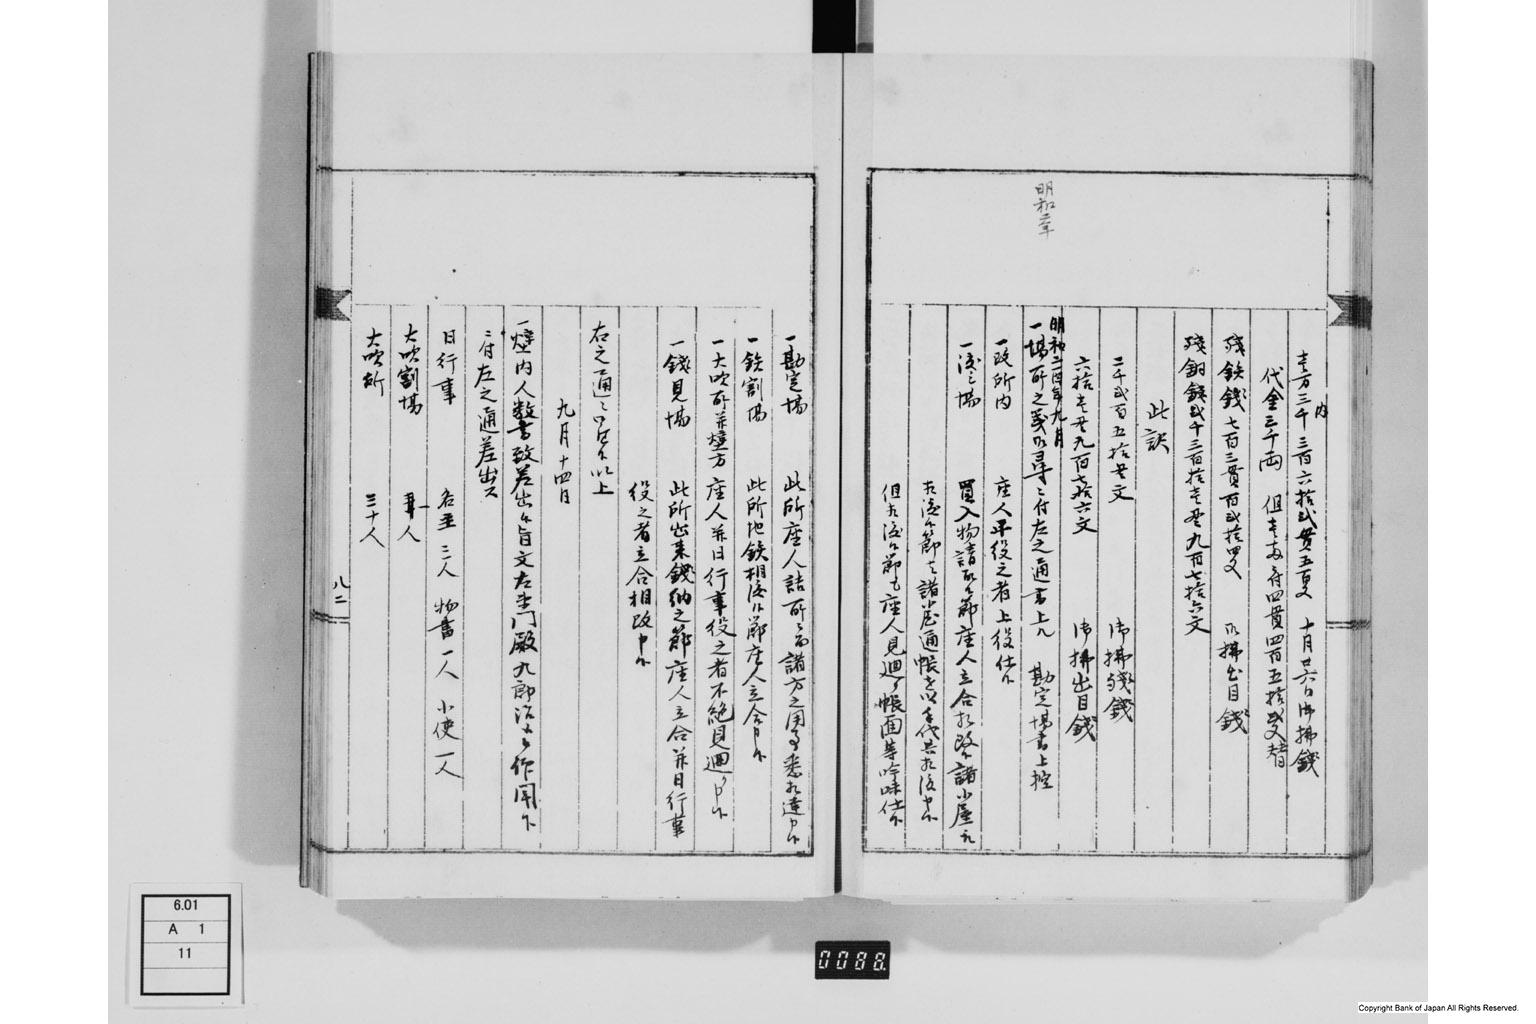 内
壱万三千三百六拾弐貫五百文 十月廿六日御拂銭
代金三千両 但壱両ニ付四貫四百五拾四文替
残鉄銭七百三貫百弐拾四文 御拂出目銭
残銅銭弐千三百拾壱貫九百七拾六文
此訳
二千弐百五拾貫文 御拂残銭
六拾壱貫九百七拾六文 御拂出目銭
明和二年
明和二酉年九月
一場所之義御尋ニ付左之通書上ル 勘定場書上控
一改所内 座人平役之者上役仕候
一渡シ場 買入物請取候節座人立合相改候諸小屋江
相渡候節者諸小屋通帳を以手代共相渡申候
但相渡候節も座人見廻り帳面等吟味仕候
一勘定場 此所座人詰所ニ而諸方之用事悉相達申候
一鉄割場 此所地鉄相渡候節座人立合申候
一大吹所并竈方 座人并日行事役之者不絶見廻り申候
一銭見場 此所出来銭納之節座人立合并日行事
役之者立合相改申候
右之通ニ御座候以上
九月十四日
一竈内人数書致差出候旨文左衛門殿九郎治
ニ付左之通差出ス
日行事 名主 三人 物書 一人 小使 一人
大吹割場
大吹所 三十人
八二
6.01
A 1
11
0088
Copyright Bank of Japan All Rights Reserved.